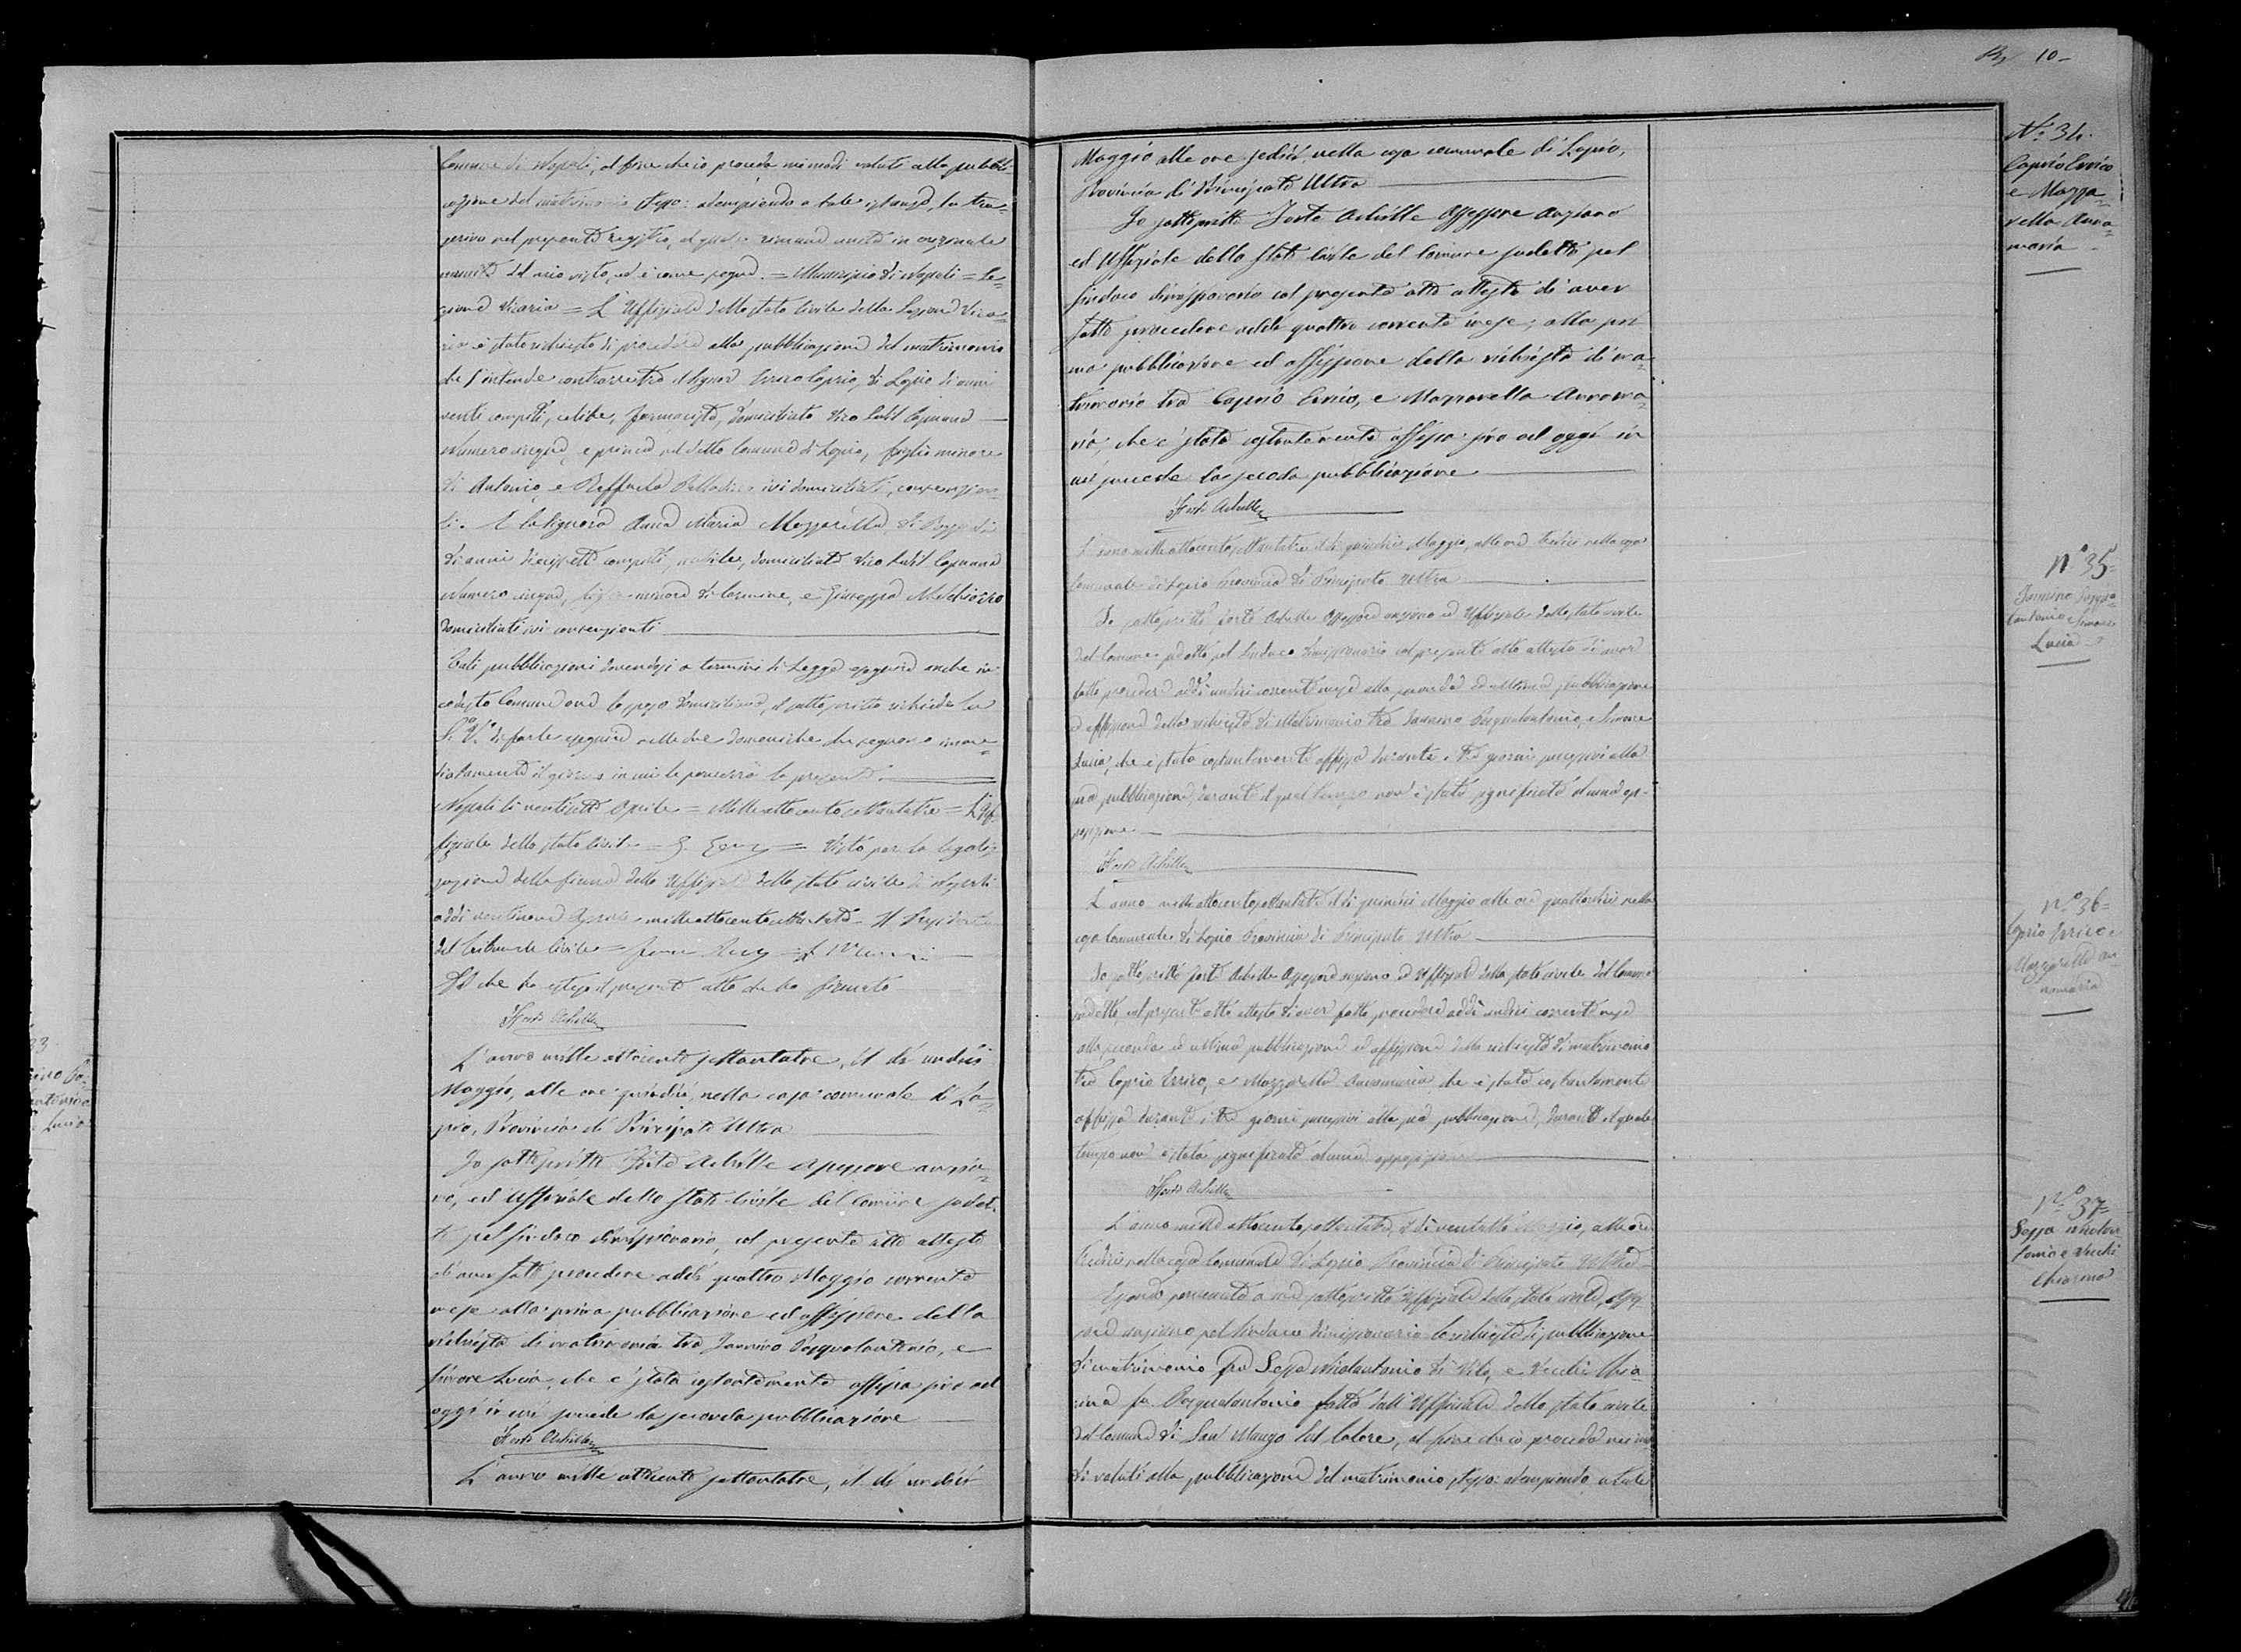 Comune di Napoli, al fine che io proceda ne modi voluti alla pubbli-
cazione del matrimonio stesso: adempiendo a tale istanza, la tra-
scrivo nel presente registro, al quale rimane unita in originale
munita del mio visto, ed è come segue. = Municipio di Napoli = Se-
zione Vicaria = L'Uffiziale dello stato Civile della Sezione Vica-
ria è stato richiesto di procedere alla pubblicazione del matrimonio
che s'intende contrarre tra il Signor Errico Caprio, di Lapio di anni
venti compiti, celibe, farmacista, domiciliato Vico Capuana
Numero cinque, e prima nel detto Comune di Lapio, figlio minore
di Antonio, e Raffaela ivi domiciliati, consenzien-
ti. E la Signora Anna Maria Mazzarella, di
di anni diciassette compiti, nubile, domiciliata Vico Capuana
Numero cinque, figlia minore di Carmine, e Giuseppa Melchiorre
domiciliati ivi consenzienti
Tali pubblicazioni dovendosi a termini di Legge eseguire anche in
codesto Comune ove lo sposo domiciliava, il sottoscritto richiede la
S.ª V.ª di farle eseguire nelle due domeniche che seguono imme-
diatamente il giorno in cui le perverrà la presente
Napoli li ventisette Aprile = Mille ottocento settantatre = L'Uf-
fiziale dello stato Civile = G. = Visto per la legaliz-
zazione della firma dello Uffiziale dello stato civile di Napoli
addì ventinove Aprile mille ottocento settantatre = Il Presidente
del Tribunale Civile =
Del che ho esteso il presente atto che ho firmato
Forte Achille
L'anno mille ottocento settantatre, il dì undici
Maggio, alle ore quindici, nella casa comunale di La-
pio, Provincia di Principato Ultra
Io sottoscritto Forte Achille Assessore anzia-
no, ed Uffiziale dello Stato Civile del Comune sudet-
to pel Sindaco dimissionario, col presente atto attesto
di aver fatto procedere addì quattro Maggio corrente
mese alla prima pubblicazione ed affissione della
richiesta di matrimonio tra Iannino Pasqualantonio, e
Simone Lucia, che è stata costantemente affissa sino ad
oggi in cui succede la seconda pubblicazione
Forte Achille
L'anno mille ottocento settantatre, il dì undici
10
Maggio alle ore sedici nella casa comunale di Lapio,
Provincia di Principato Ultra
Io sottoscritto Forte Achille Assessore Anziano
ed Uffiziale dello Stato Civile del Comune sudetto pel
Sindaco dimissionario col presente atto attesto di aver
fatto procedere addì quattro corrente mese, alla pri-
ma pubblicazione ed affissione della richiesta di ma-
trimonio tra Caprio Errico, e Mazzarella Annama-
ria, che è stata costantemente affissa sino ad oggi in
cui succede la seconda pubblicazione
Forte Achille
L'anno mille ottocento settantatre il dì quindici Maggio, alle ore tredici nella casa
Comunale di Lapio Provincia di Principato Ultra
Io sottoscritto Forte Achille Assessore anziano ed Uffiziale dello stato civile
del Comune sudetto pel Sindaco dimissionario col presente atto attesto di aver
fatto procedere addì undici corrente mese alla seconda ed ultima pubblicazione
ed affissione della richiesta di Matrimonio tra Iannino Pasqualantonio, e Simone
Lucia, che è stata costantemente affissa durante i tre giorni successivi alla
sua pubblicazione, durante il qual tempo non è stata significata alcuna op-
posizione
Forte Achille
L'anno mille ottocento settantatre il dì quindici Maggio alle ore quattordici nella
casa Comunale di Lapio Provincia di Principato Ultra
Io sottoscritto Forte Achille Assessore anziano ed Uffiziale dello stato civile del Comune
sudetto, col presente atto attesto di aver fatto procedere addì undici corrente mese
alla seconda ed ultima pubblicazione ed affissione della richiesta di matrimonio
tra Caprio Errico, e Mazzarella Annamaria che è stata costantemente
affissa durante i tre giorni successivi alla sua pubblicazione, durante il quale
tempo non è stata significata alcuna opposizione
Forte Achille
L'anno mille ottocento settantatre, il dì ventotto Maggio, alle ore
tredici nella casa Comunale di Lapio Provincia di Principato Ultra
Essendo pervenuta a me sottoscritto Uffiziale dello stato civile, Asses-
sore anziano pel Sindaco dimissionario la richiesta di pubblicazione
di matrimonio fra Sessa Nicolantonio di Vito, e Vecchi Chia-
rina fu Pasqualantonio fatta dall'Uffiziale dello stato civile
del Comune di San Mango sul Calore, al fine che io proceda nei mo-
di voluti alla pubblicazione del matrimonio stesso: adempiendo a tale
N.º 34.
Caprio Errico
e Mazza-
rella Anna-
maria
N.º 35=
Iannino Pasqua-
lantonio e Simone
Lucia
N.º 36=
Caprio Errico e
Mazzarella An-
namaria
N.º 37=
Sessa Nicolan-
tonio e Vecchi
Chiarina